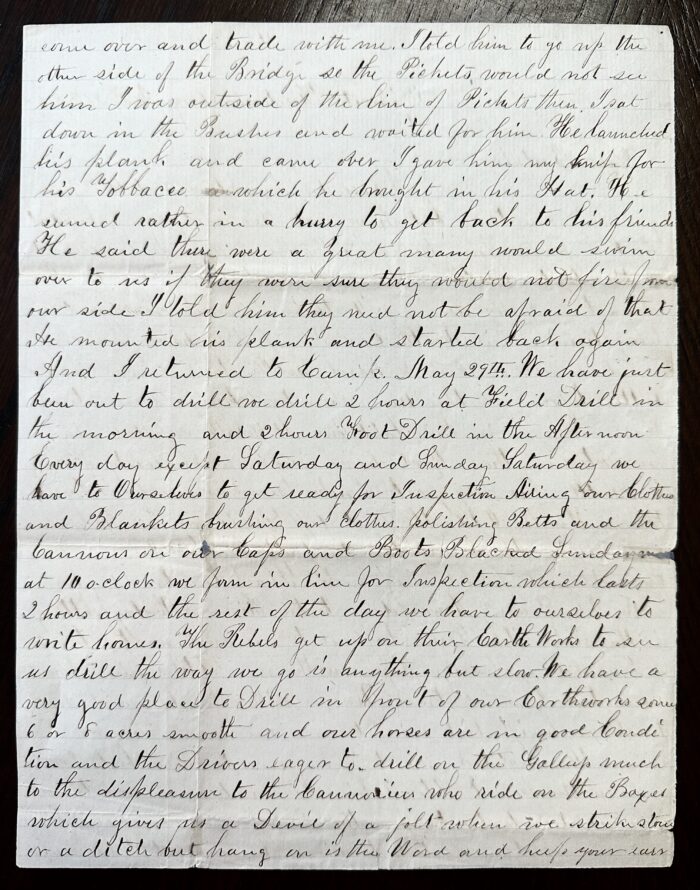 come over and trade with me. I told him to go up the
other side of the Bridge so the Pickets, would not see
him I was outside of the line of Pickets then. I sat
down in the Bushes and waited for him He launched
his plank and came over I gave him my knife for
his Tobbacco which he brought in his Hat. He
seemed rather in a hurry to get back to his friends
He said there were a great many would swim
over to us if they were sure they would not fire from
our side I told him they need not be afraid of that
He mounted his plank and started back again
And I returned to Camp. May 29th. We have just
been out to drill we drill 2 hours at Field Drill in
the morning and 2 hours Foot Drill in the Afternoon
Every day except Saturday and Sunday Saturday we
have to Ourselves to get ready for Inspection Airing our Clothes
and Blankets brushing our clothes. polishing Belts and the
Cannons on our Caps and Boots Blacked Sunday
at 10 o-clock we form in line for Inspection which lasts
2 hours and the rest of the day we have to ourselves to
write homes. The Rebels get up on their Earth Works to see
us drill the way we go is anything but slow. We have a
very good place to Drill in front of our Earthworks some
6 or 8 acres smooth and our horses are in good Condi
tion and the Drivers eager to drill on the Gallup much
to the displeasure to the Cannoniers who ride on the Boxes
which gives us a Devil of a jolt when we strike stone
or a ditch but hang on is the Word and keep your